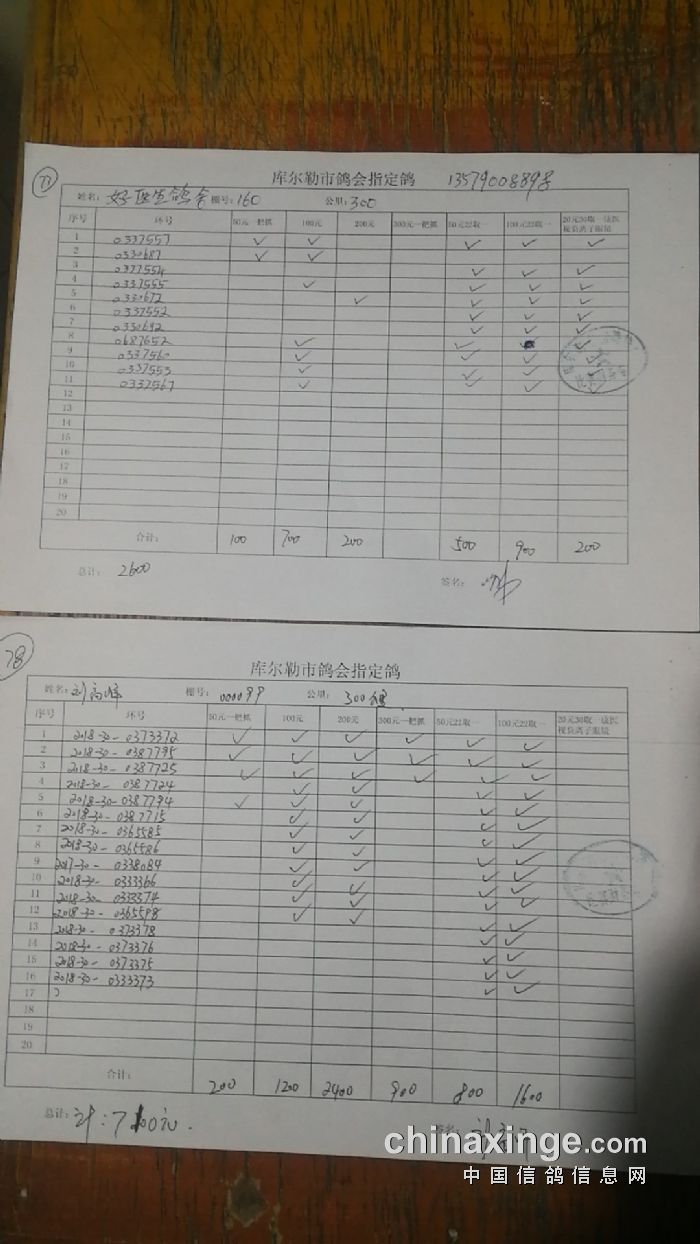 77 库尔勒市鸽会指定鸽 13579008898
姓名: 好医生鸽舍 棚号: 160 公里: 300
序号 环号 50元一把抓 100元 200元 300元一把抓 50元22取一 100元22取一 20元30取一
视负离子眼镜
1 0337557 ✓ ✓ ✓ ✓ ✓
2 0330687 ✓ ✓ ✓ ✓ ✓
3 0337554 ✓ ✓ ✓
4 0337555 ✓ ✓ ✓ ✓
5 0330672 ✓ ✓ ✓ ✓
6 0337552 ✓ ✓ ✓
7 0330692 ✓ ✓ ✓
8 0687652 ✓ ✓
9 0337560 ✓ ✓ ✓
10 0337553 ✓ ✓ ✓
11 0337567 ✓ ✓ ✓
12
13
14
15
16
17
18
19
20
合计: 100 700 200 500 900 200
总计: 2600 签名:
78 库尔勒市鸽会指定鸽
姓名: 刘高峰 棚号: 000099 公里: 300
序号 环号 50元一把抓 100元 200元 300元一把抓 50元22取一 100元22取一 20元30取一
视负离子眼镜
1 2018-30-0373372 ✓ ✓ ✓ ✓ ✓ ✓
2 2018-30-0387795 ✓ ✓ ✓ ✓ ✓ ✓
3 2018-30-0387725 ✓ ✓ ✓ ✓ ✓ ✓
4 2018-30-0387724 ✓ ✓ ✓ ✓
5 2018-30-0387794 ✓ ✓ ✓ ✓ ✓
6 2018-30-0387715 ✓ ✓ ✓ ✓
7 2018-30-0365585 ✓ ✓ ✓ ✓
8 2018-30-0365586 ✓ ✓ ✓ ✓
9 2017-30-0338084 ✓ ✓ ✓ ✓
10 2018-30-0333366 ✓ ✓ ✓ ✓
11 2018-30-0333374 ✓ ✓ ✓ ✓
12 2018-30-0365598 ✓ ✓ ✓ ✓
13 2018-30-0373378 ✓ ✓
14 2018-30-0373376 ✓ ✓
15 2018-30-0373375 ✓ ✓
16 2018-30-0333373 ✓ ✓
17
18
19
20
合计: 200 1200 2400 900 800 1600
总计: 计:7100元. 签名:
chinaxinge.com
中国信鸽信息网